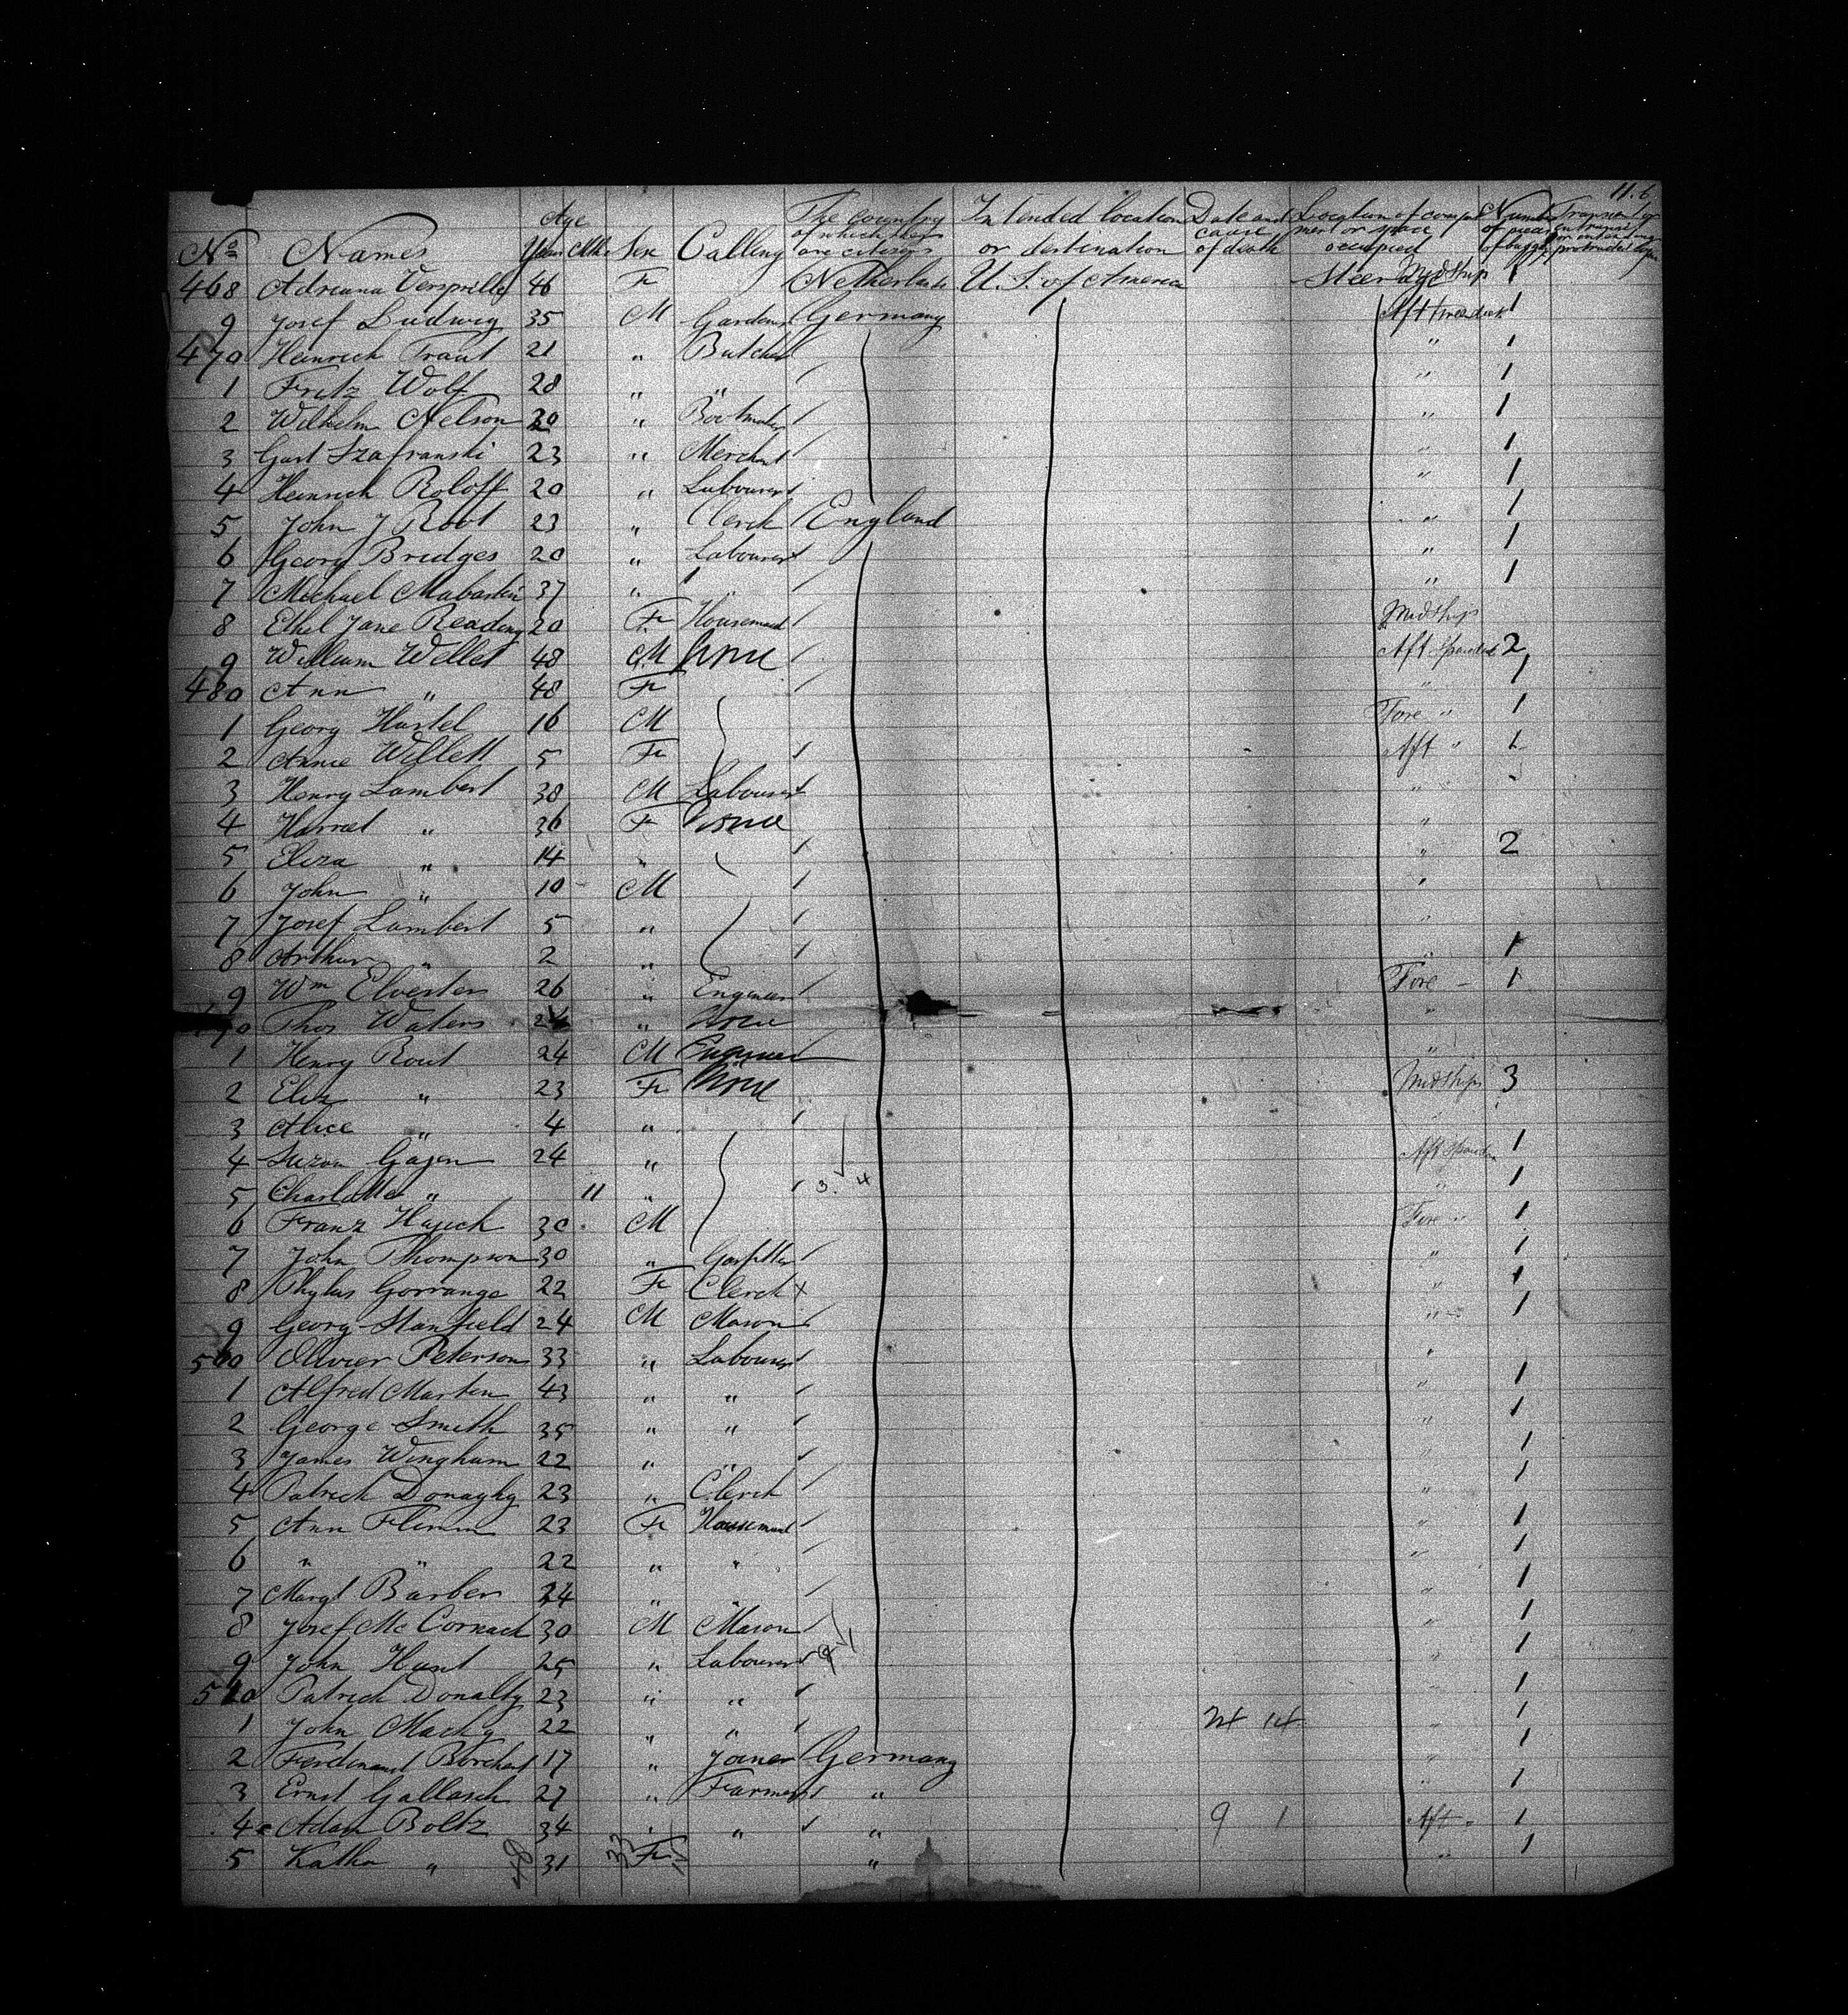 11.6
Nº Names Age Years Mths Sex Calling The country of which they are citizens Intended location or destination Date and cause of death Location of compartment or space occupied Number of pieces of baggage Transient or in transit or intending protracted
468 Adriana Versprille 46 F Netherlands U.S. of America Steerage Midships 1
9 Josef Ludwig 35 M Gardener Germany Aft 1
470 Heinrich Traut 21 " Butcher " 1
1 Fritz Wolf 28 " " " 1
2 Wilhelm Nelson 30 " Bootmaker " 1
3 Gust Szafranski 23 " Merchant " 1
4 Heinrich Roloff 20 " Labourer " 1
5 John J Root 23 " Clerck England " 1
6 Georg Bridges 20 " Labourer " 1
7 Michael 37 " " " 1
8 Ethel Jane Reading 20 F Housemaid Midships
9 William Willet 48 M None Aft 2
480 Ann " 48 F " 1
1 Georg Hartel 16 M Fore " 1
2 Annie Willett 5 F Aft " 1
3 Henry Lambert 38 M Labourer "
4 Harriet " 36 F None "
5 Eliza " 14 " " 2
6 John " 10 M "
7 Josef Lambert 5 " "
8 Arthur " 2 " " 1
9 Wm Elvester 26 " Engineer Fore 1
490 Thos Waters " None "
1 Henry Rout 24 M Engineer "
2 Eliz " 23 F None Midships 3
3 Alice " 4 " "
4 Suzan Gagen 24 " Aft 1
5 Charlotte " 11 " 3. 4 " 1
6 Franz Hajeck 30 M Fore " 1
7 John Thompson 30 " Gasfitter " 1
8 Phylus Gorrange 22 F Clerck " 1
9 Georg Stanfield 24 M Mason " 1
500 Olivier Peterson 33 " Labourer "
1 Alfred Marten 43 " " " 1
2 George Smith 35 " " " 1
3 James Wingham 22 " " " 1
4 Patrick Donaghy 23 " Clerck " 1
5 Ann Flimm 23 F Housemaid " 1
6 " " 22 " " " 1
7 Margt Barber 24 " " " 1
8 Josef Mc Cormack 30 M Mason " 1
9 John Hunt 25 " Labourer " 1
510 Patrick Donalty 23 " " 1
1 John Macky 22 " " 24 14 " 1
2 Ferdinand Borchert 17 " Joiner Germany " 1
3 Ernst Gallasch 27 " Farmer " " 1
4 Adam Boltz 34 " " " 9 1 Aft " 1
5 Katha " 31 F " " 1
48 33 15